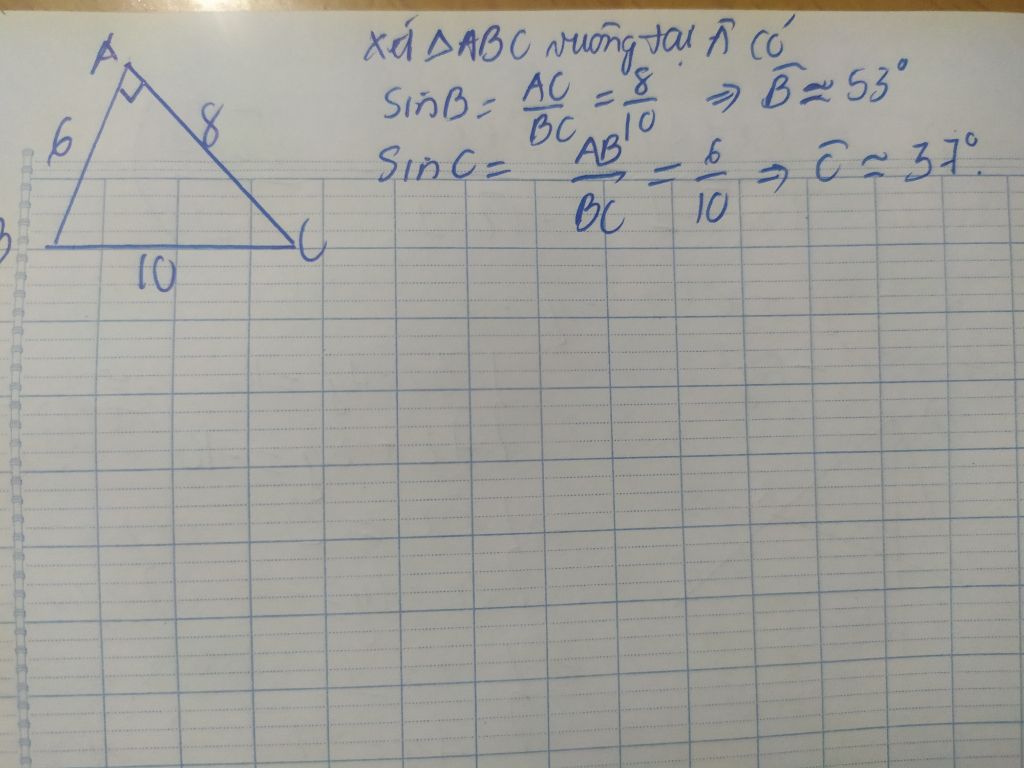 A
6
8
B
C
10
Xét △ABC vuông tại A có
SinB = AC/BC = 8/10 ⇒ B̂ ≈ 53°
SinC = AB/BC = 6/10 ⇒ Ĉ ≈ 37°.